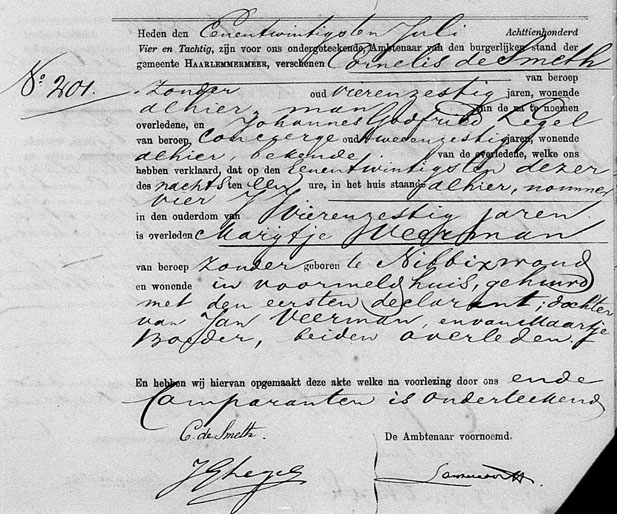 Heden den Eenentwintigsten Juli Achttienhonderd
Vier en Tachtig, zijn voor ons ondergeteekende, Ambtenaar van den burgerlijken stand der
gemeente HAARLEMMERMEER, verschenen Cornelis de Smeth
van beroep
No. 201. zonder oud vierenzestig jaren, wonende
alhier, man van de na te noemen
overledene, en Johannes Godfried Legel
van beroep Concierge oud tweeenzestig jaren, wonende
alhier, bekende van de overledene, welke ons
hebben verklaard, dat op den Eenentwintigsten dezer
des nachts ten elf ure, in het huis staande alhier, nommer
vier
in den ouderdom van Vierenzestig jaren
is overleden Marijtje Veerman
van beroep zonder geboren te Nibbixwoud
en wonende in voormeld huis, gehuwd
met den eersten declarant; dochter
van Jan Veerman, en van Maartje
Boeder, beiden overleden.
En hebben wij hiervan opgemaakt deze akte welke na voorlezing door ons en de
Comparanten is onderteekend
C. de Smeth. De Ambtenaar voornoemd.
JGLegel